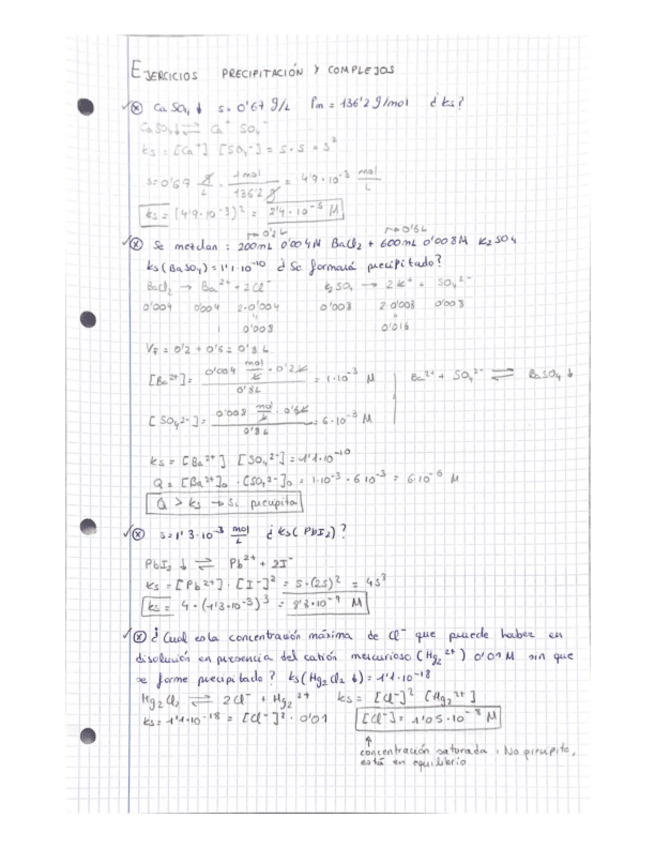 EJERCICIOS PRECIPITACIÓN Y COMPLEJOS
✓⊗ CaSO₄↓ s = 0'67 g/L Pm = 136'2 g/mol ¿ks?
CaSO₄↓ ⇌ Ca⁺ SO₄⁻
ks = [Ca⁺] [SO₄⁻] = s · s = s²
s = 0'69 g/L · 1 mol / 136'2 g = 4'9 · 10⁻³ mol/L
ks = (4'9 · 10⁻³)² = 2'4 · 10⁻⁵ M
→ 0'2 L → 0'6 L
✓⊗ Se mezclan : 200 mL 0'004 M BaCl₂ + 600 mL 0'008 M K₂SO₄
ks (BaSO₄) = 1'1 · 10⁻¹⁰ ¿Se formará precipitado?
BaCl₂ → Ba²⁺ + 2Cl⁻ K₂SO₄ → 2K⁺ + SO₄²⁻
0'004 0'004 2·0'004 0'008 2·0'008 0'008
0'008 0'016
V_F = 0'2 + 0'6 = 0'8 L
[Ba²⁺] = 0'004 mol/L · 0'2 L / 0'8 L = 1 · 10⁻³ M Ba²⁺ + SO₄²⁻ ⇌ BaSO₄↓
[SO₄²⁻] = 0'008 mol/L · 0'6 L / 0'8 L = 6 · 10⁻³ M
ks = [Ba²⁺] [SO₄²⁻] = 1'1 · 10⁻¹⁰
Q = [Ba²⁺]₀ · [SO₄²⁻]₀ = 1 · 10⁻³ · 6 · 10⁻³ = 6 · 10⁻⁶ M
Q > ks → Si precipita
✓⊗ s = 1'3 · 10⁻³ mol/L ¿ks (PbI₂)?
PbI₂↓ ⇌ Pb²⁺ + 2I⁻
ks = [Pb²⁺] · [I⁻]² = s · (2s)² = 4s³
ks = 4 · (1'3 · 10⁻³)³ = 8'8 · 10⁻⁹ M
✓⊗ ¿Cual es la concentración máxima de Cl⁻ que puede haber en
disolución en presencia del catión mercurioso (Hg₂²⁺) 0'01 M sin que
se forme precipitado? ks (Hg₂Cl₂↓) = 1'1 · 10⁻¹⁸
Hg₂Cl₂ ⇌ 2Cl⁻ + Hg₂²⁺ ks = [Cl⁻]² [Hg₂²⁺]
ks = 1'1 · 10⁻¹⁸ = [Cl⁻]² · 0'01 [Cl⁻] = 1'05 · 10⁻⁸ M
↑
concentración saturada. No precipita,
está en equilibrio